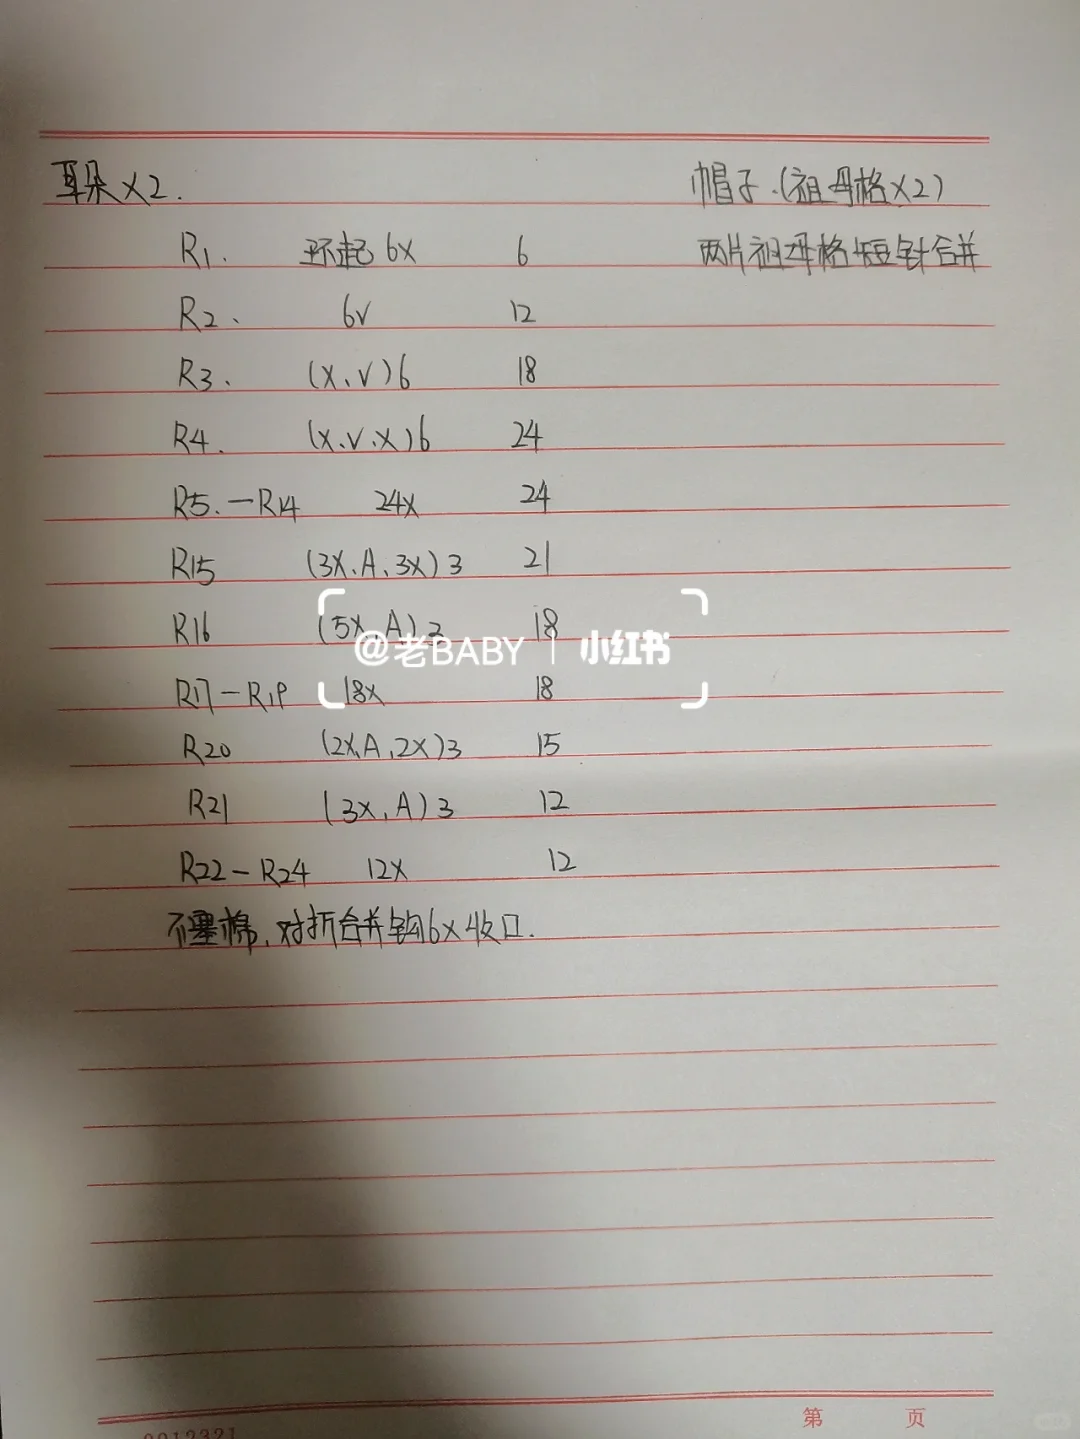 耳朵×2.
R1. 环起6x 6
R2. 6v 12
R3. (x.v)6 18
R4. (x.v.x)6 24
R5.—R14 24x 24
R15 (3x.A.3x)3 21
R16 (5x,A)3 18
R17—R19 18x 18
R20 (2x,A,2x)3 15
R21 (3x,A)3 12
R22—R24 12x 12
不塞棉,对折合并钩6x收口.
帽子.(祖母格×2)
两片祖母格短针合并
@老BABY 小红书
第 页